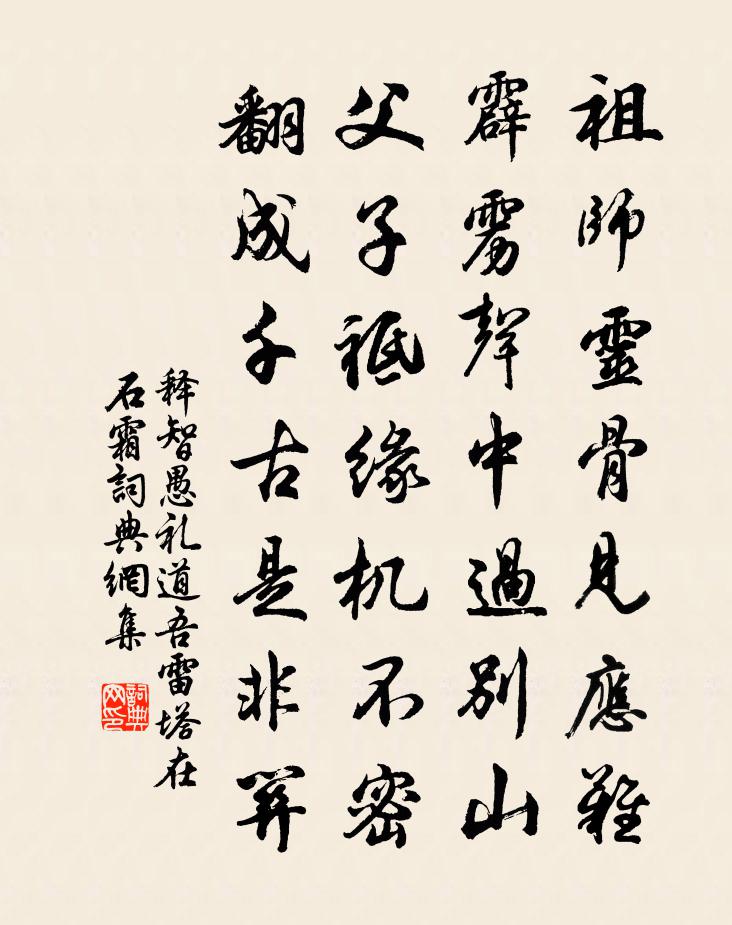 祖師靈骨見應難
霹雳聲中過別山
父子祗缘机不密
翻成千古是非関
释智愚礼道吾雷塔在
石霜詞典網集
詞典网印